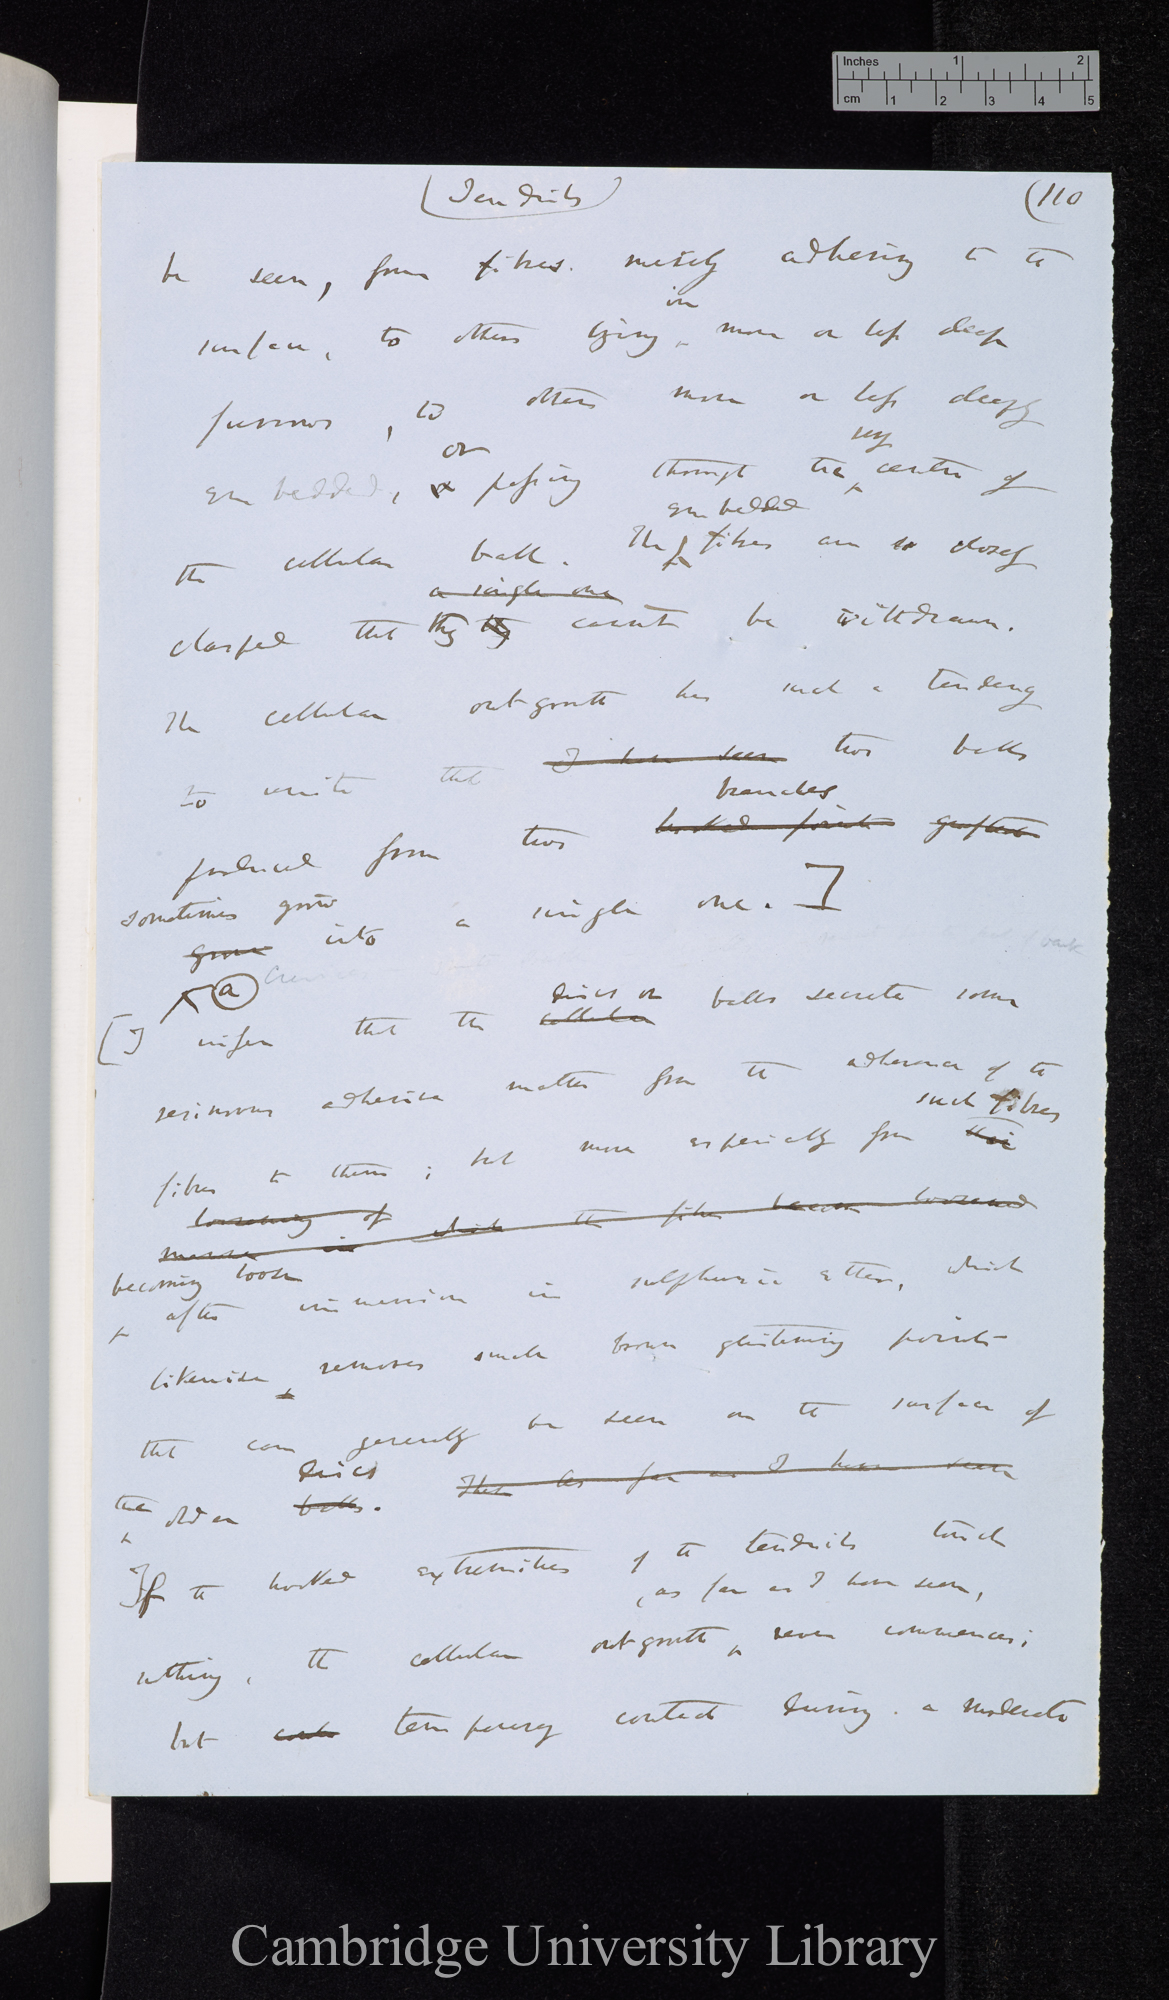 Inches 1 2
cm 1 2 3 4 5
(Tendrils)
(110
be seen, from fibres merely adhering to the
in
surface, to others lying more or less deep
furrows, to others more or less deeply
or very
embedded, or passing through the centre of
embedded
the cellular ball. The fibres are so closely
a single one
clasped that they they cannot be withdrawn.
The cellular outgrowth has such a tendency
to unite that I have seen two balls
branches
produced from two hooked points grafted
sometimes grow
grown into a single one. ]
a
discs or
[I infer that the cellular balls secrete some
resinous adhesive matter from the adherence of the
such fibres
fibres to them; but more especially from their
loosening of
manner in which the fibres become loosened
becoming loose
after immersion in sulphuric ether, which
likewise removes small brown glistening points
that can generally be seen on the surface of
discs
the older balls. That as far as I have seen
If the hooked extremities of the tendrils touch
, as far as I have seen,
nothing, the cellular outgrowth never commences;
but temporary contact during a moderate
Cambridge University Library